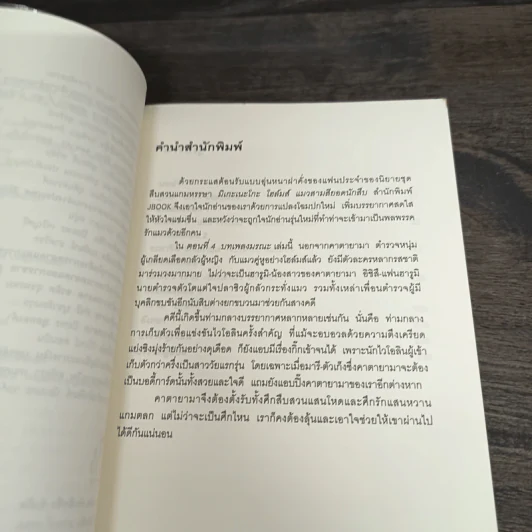 คำนำสำนักพิมพ์
ด้วยกระแสตอบรับแบบอุ่นหนาฝาคั่งของแฟนประจำของนิยายชุด
สืบสวนแกมหรรษา มิเกะเนะโกะ โฮล์มส์ แมวสามสียอดนักสืบ สำนักพิมพ์
JBOOK จึงเอาใจนักอ่านของเราด้วยการแปลงโฉมปกใหม่ เพิ่มบรรยากาศสดใส
ให้หัวใจแช่มชื่น และหวังว่าจะถูกใจนักอ่านรุ่นใหม่ที่ทำท่าจะเข้ามาเป็นพลพรรค
รักแมวด้วยอีกคน
ใน ตอนที่ 4 บทเพลงมรณะ เล่มนี้ นอกจากคาตายามา ตำรวจหนุ่ม
ผู้เกลียดเลือดกลัวผู้หญิง กับแมวคู่หูอย่างโฮล์มส์แล้ว ยังมีตัวละครหลากรสชาติ
มาร่วมวงมากมาย ไม่ว่าจะเป็นฮารูมิ-น้องสาวของคาตายามา อิชิสึ-แฟนฮารูมิ
นายตำรวจตัวโตแต่ใจปลาซิวผู้กลัวกระทั่งแมว รวมทั้งเหล่าเพื่อนตำรวจผู้มี
บุคลิกชบขันอีกนับสิบต่างยกขบวนมาช่วยกันสางคดี
คดีนี้เกิดขึ้นท่ามกลางบรรยากาศหลากหลายเช่นกัน นั่นคือ ท่ามกลาง
การเก็บตัวเพื่อแข่งขันไวโอลินครั้งสำคัญ ที่แม้จะอบอวลด้วยความตึงเครียด
แย่งชิงมุ่งร้ายกันอย่างดุเดือด ก็ยังแอบมีเรื่องกิ๊กเข้าจนได้ เพราะนักไวโอลินผู้เข้า
เก็บตัวกว่าครึ่งเป็นสาววัยแรกรุ่น โดยเฉพาะเมื่อมารี-ตัวเก็งซึ่งคาตายามาจะต้อง
เป็นบอดี้การ์ดนั้นทั้งสวยและใจดี แถมยังแอบปิ๊งคาตายามาของเราอีกต่างหาก
คาตายามาจึงต้องตั้งรับทั้งศึกสืบสวนแสนโหดและศึกรักแสนหวาน
แกมตลก แต่ไม่ว่าจะเป็นศึกไหน เราก็คงต้องลุ้นและเอาใจช่วยให้เขาผ่านไป
ได้ดีกันแน่นอน